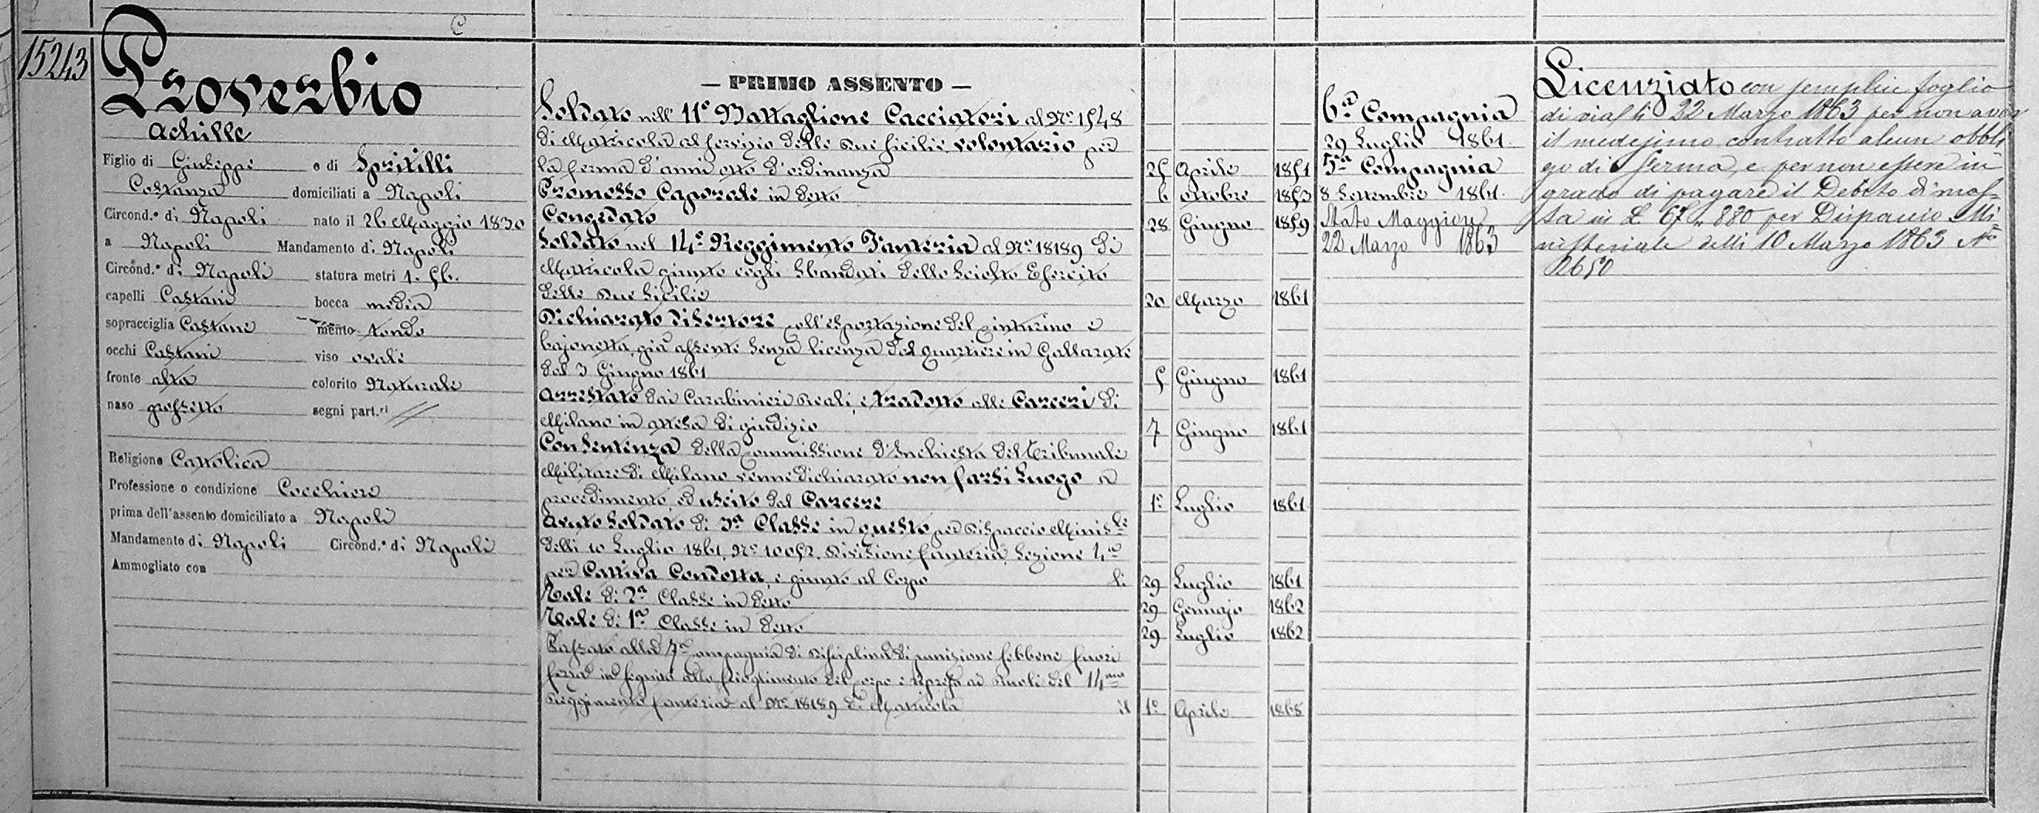 C
15243
Proverbio
Achille
Figlio di Giuseppe e di Spritilli
Costanza domiciliati a Napoli
Circond.º di Napoli nato il 26 Maggio 1830
a Napoli Mandamento di Napoli
Circond.º di Napoli statura metri 1. 56.
capelli Castani bocca media
sopracciglia Castane mento tondo
occhi Castani viso ovale
fronte alta colorito Naturale
naso grossetto segni part.ri //
Religione Cattolica
Professione o condizione Cocchiere
prima dell'assento domiciliato a Napoli
Mandamento di Napoli Circond.º di Napoli
Ammogliato con
— PRIMO ASSENTO —
Soldato nell' 11º Battaglione Cacciatori al Nº 1548
di Matricola al servizio delle Due Sicilie, volontario per
la ferma d'anni otto d'ordinanza 25 Aprile 1851
Promosso Caporale in detto 6 Ottobre 1853
Congedato 28 Giugno 1859
Soldato nel 14º Reggimento Fanteria al Nº 18189 di
Matricola giunto cogli Sbandati dello Sciolto Esercito
delle Due Sicilie 20 Marzo 1861
Dichiarato disertore coll'esportazione del cinturino e
bajonetta, già assente senza licenza dal quartiere in Gallarate
dal 3 Giugno 1861 5 Giugno 1861
Arrestato dai Carabinieri Reali, e tradotto alle Carceri di
Milano in attesa di giudizio 7 Giugno 1861
Con Sentenza della Commissione d'Inchiesta del Tribunale
Militare di Milano venne dichiarato non farsi luogo a
procedimento, ed uscito dal Carcere 1º Luglio 1861
Avuto Soldato di 3ª Classe in questo per Dispaccio Minis.le
delli 10 Luglio 1861. Nº 10052. Divisione fanteria, Sezione 4ª
per Cattiva Condotta, e giunto al Corpo li 29 Luglio 1861
Tale di 2ª Classe in detto 29 Gennajo 1862
Tale di 1ª Classe in detto 29 Luglio 1862
Passato alla 7ª Compagnia di Disciplina di punizione sebbene fuori
forza in seguito allo scioglimento del corpo e ripreso ai Ruoli del 14mo
Reggimento fanteria al Nº 18189 di Matricola il 1º Aprile 1868
6ª Compagnia
29 Luglio 1861.
5ª Compagnia
8 Settembre 1861.
Stato Maggiore
22 Marzo 1863
Licenziato con semplice foglio
di via li 22 Marzo 1863 per non aver
il medesimo contratto alcun obbli
go di ferma, e per non essere in
grado di pagare il Debito di mas-
sa in £ 67„ 880 per Dispaccio Mi
nisteriale delli 10 Marzo 1863 Nº
2650